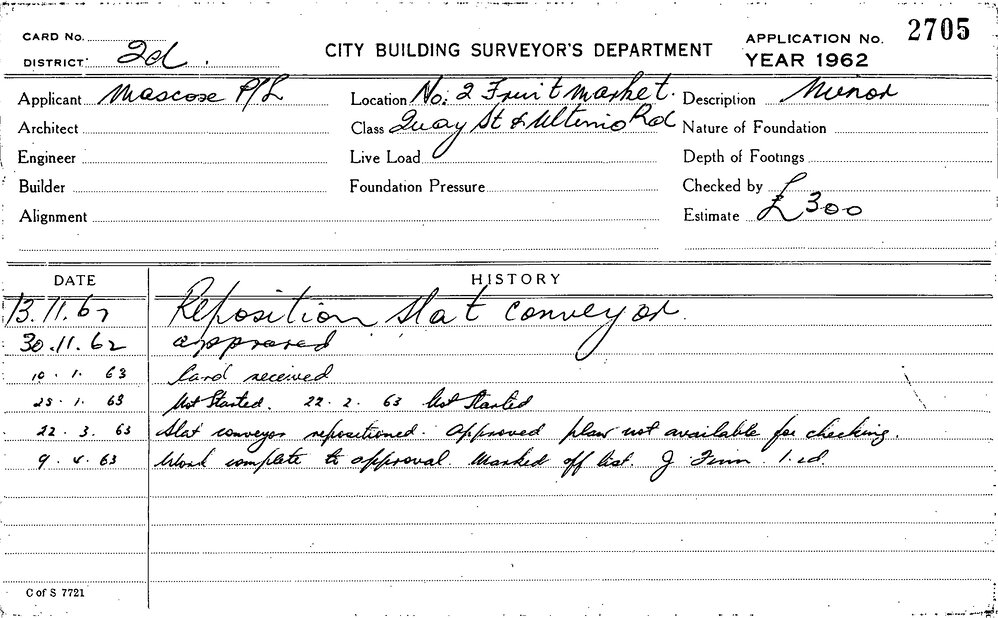 CARD No.
CITY BUILDING SURVEYOR'S DEPARTMENT
APPLICATION No. 2705
DISTRICT 2d.
YEAR 1962
Applicant Mascose P/L
Location No. 2 Fruit market.
Description Minor
Architect
Class Quay St & Ultimo Rd
Nature of Foundation
Engineer
Live Load
Depth of Footings
Builder
Foundation Pressure
Checked by
Alignment
Estimate £300
DATE HISTORY
13.11.62 Reposition slat conveyor.
30.11.62 approved
10.1.63 Card received
25.1.63 Not Started. 22.2.63 Not Started
22.3.63 Slat conveyor repositioned. Approved plan not available for checking.
9.4.63 Work complete to approval. Marked off list. J
C of S 7721